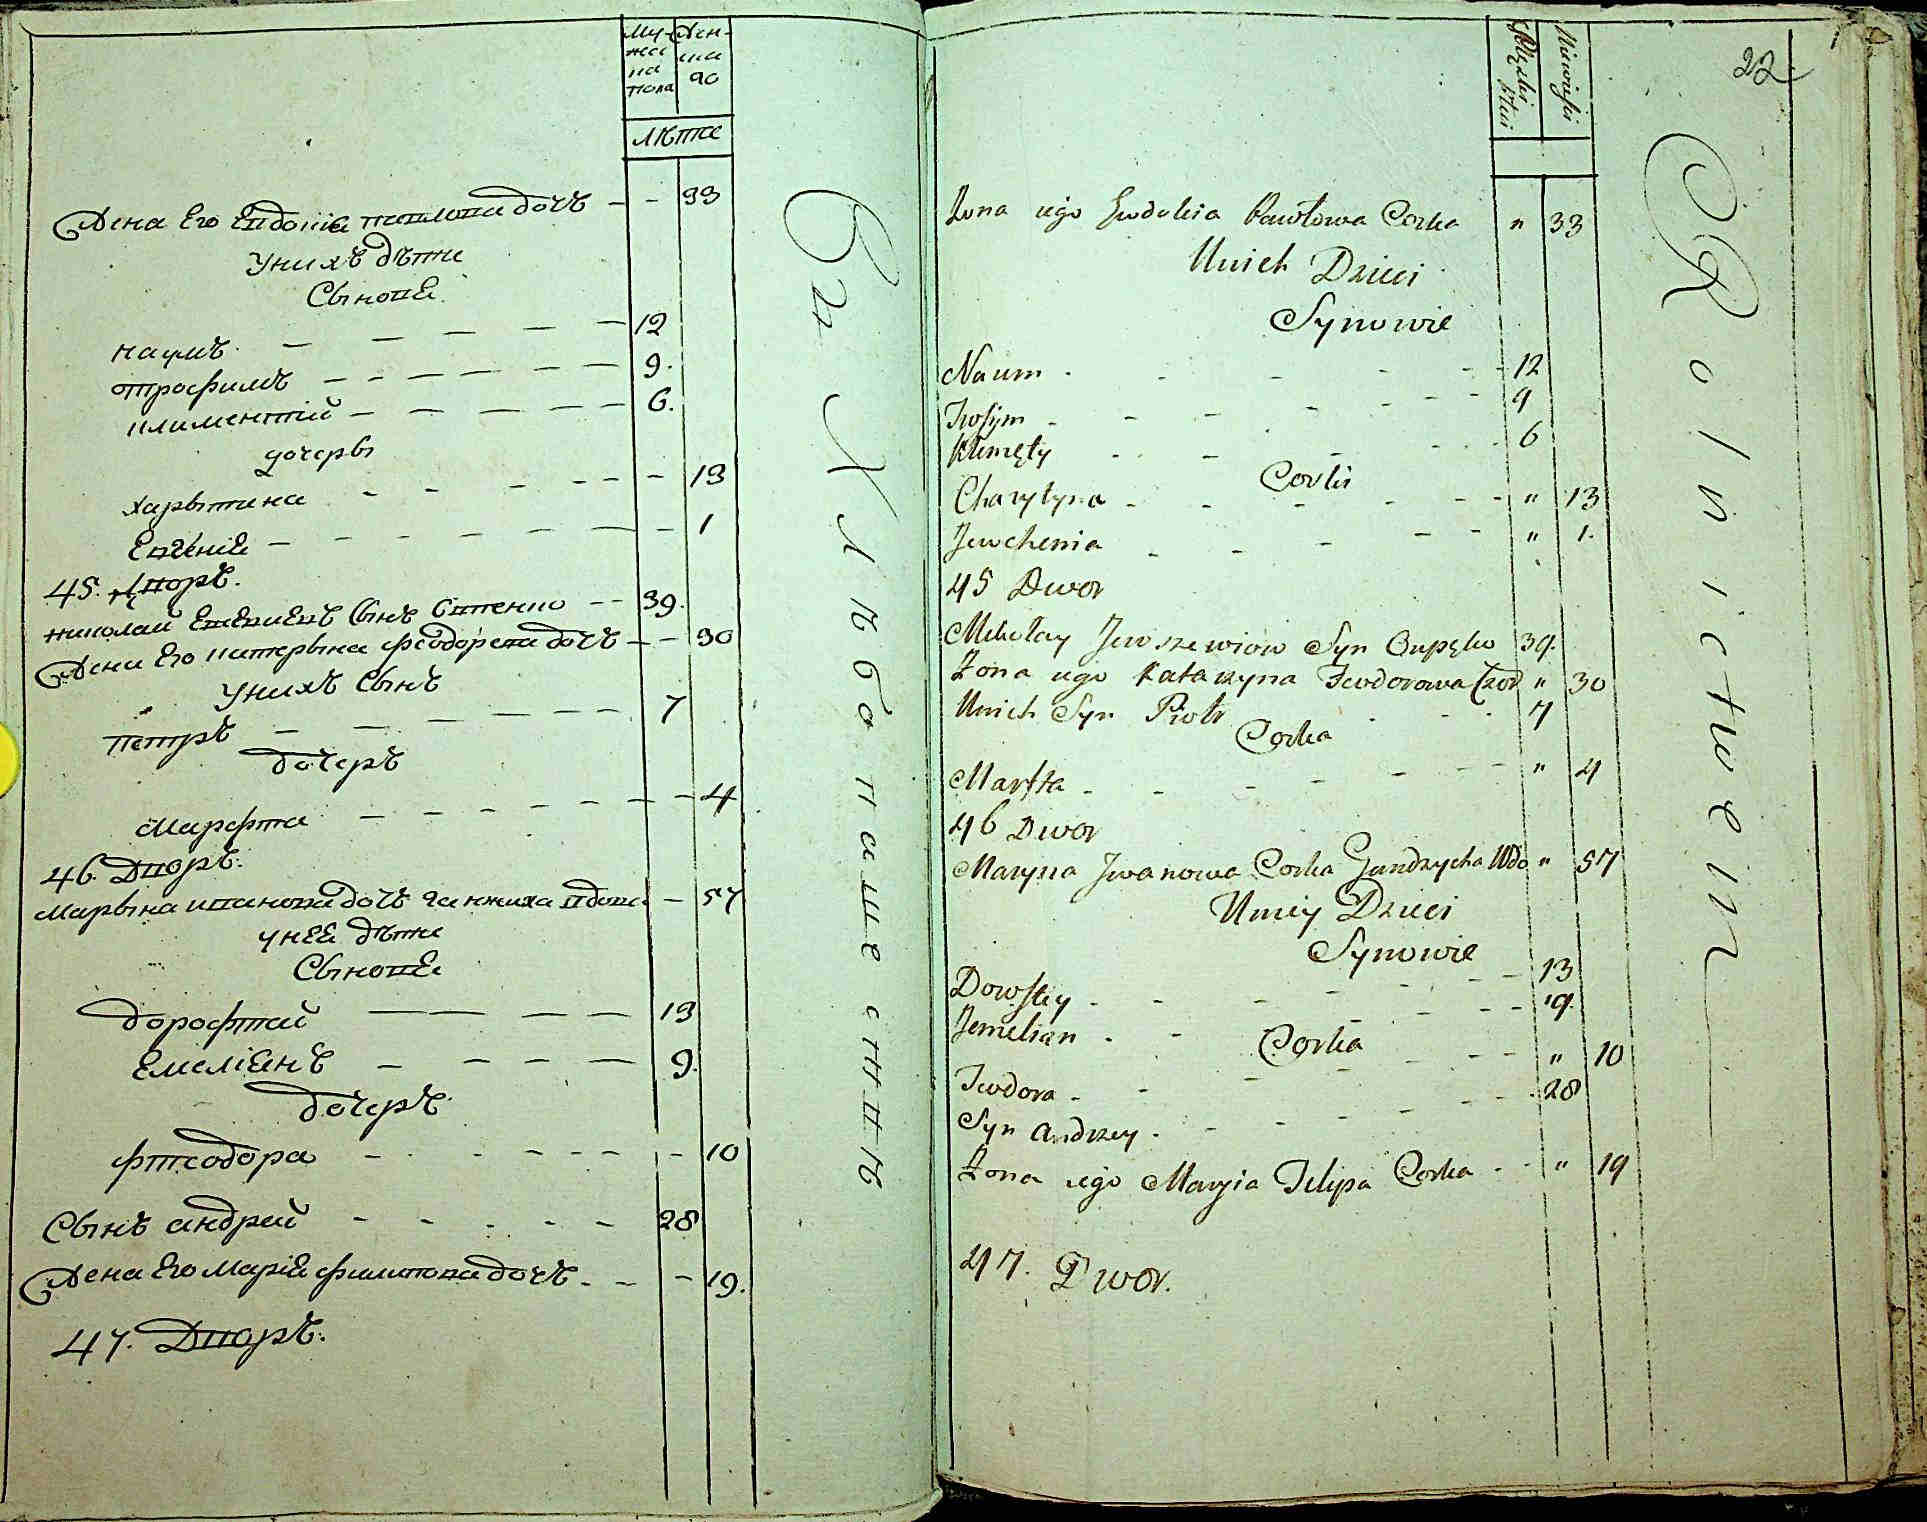 Му-
жес
ка
пола
Жен-
ска
go
лѣта
Жена Его Евдокіѣ павлова дочъ - - 33
У нихъ дѣти
Сыновѣ
наумъ - - - - 12
отрофимъ - - - - - - 9.
климентій - - - - - 6.
дочеры
харытина - - - - - - 13
Евгѣніѣ - - - - - - - 1
45. Дворъ.
николай Евсѣвиевъ Сынъ - - 39.
Жена Его катерына феодорова дочъ - - 30
У нихъ Сынъ
петръ - - - - - - 7
дочеръ
Марфта - - - - - - - 4
46. Дворъ.
Марына иванова дочъ ганжиха вдова - 57
у неѣ дѣти
Сыновѣ
дорофтей - - - - 13
Емеліѣнъ - - - - 9.
дочеръ.
фтеодора - - - - - - - 10
Сынъ андрей - - - - - 28
Жена Его Маріѣ филипова дочъ. - - 19.
47. Дворъ.
Въ Хлѣбопашенствѣ
22
Męski
płci
Niewieści
Żona iego Ewdokia Pawłowa Corka " 33
U nich Dzieci
Synowie
Naum - - - - - 12
Trofym - - - - - - 9
Klimęty - - - - - 6
Corki
Charytyna - - - - - - " 13
Jewchenia - - - - - " 1.
45 Dwor
Mikołay Jewszewiow Syn 39.
Żona iego Katarzyna Teodorowa Cor " 30
U nich Syn Piotr - - - 7
Corka
Marfta - - - - - - " 4
46 Dwor
Maryna Jwanowa Corka Gandzycha Wdo " 57
U niey Dzieci
Synowie
Dowftey - - - - - - 13
Jemelian - - - - - 9.
Corka
Teodora - - - - - - " 10
Syn Andrzey - - - - - - 28
Żona iego Maryia Filipa Corka - - " 19
47. Dwor.
W Rolnictwein